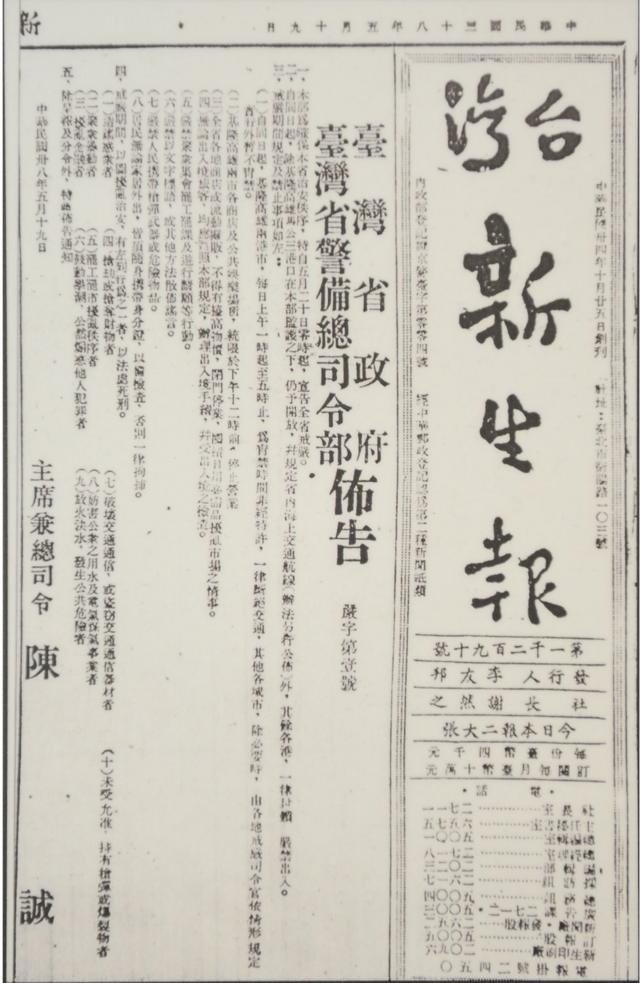 中華民國三十八年五月十九日
新
台灣新生報
中華民國卅四年十月廿五日創刊
社址：臺北市衡陽路一〇三號
內政部登記證京警臺字第零零四號
經中華郵政登記認為第二種新聞紙類
第一千二百九十號
發行人 李友邦
社長 謝然之
今日本報二大張
每份臺幣四千元
訂閱每月臺幣十萬元
電話
臺灣省政府
臺灣省警備總司令部
佈告
嚴字第壹號
一、本部為確保本省治安秩序，特自五月二十日零時起，宣告全省戒嚴。
二、自同日起，除基隆高雄馬公三港口在本部監護之下，仍予開放，并規定省內海上交通航線（辦法另行公佈）外，其餘各港，一律封鎖，嚴禁出入。
三、戒嚴期間規定及禁止事項如左：
（一）自同日起，基隆高雄兩港市，每日上午一時起至五時止，為宵禁時間，非經特許，一律斷絕交通，其他各城市，除必要時，由各地戒嚴司令官依情形規定
實行外，暫不宵禁。
（二）基隆高雄兩市各商店及公共娛樂場所，統限於下午十二時前，停止營業。
（三）全省各地商店或流動攤販，不得有抬高物價，閉門停業，囤積日用必需品擾亂市場之情事。
（四）無論出入境旅客，均應依照本部規定，辦理出入境手續，并受出入境之檢查。
（五）嚴禁聚眾集會罷工罷課及遊行請願等行動。
（六）嚴禁以文字標語，或其他方法散佈謠言。
（七）嚴禁人民攜帶槍彈武器或危險物品。
（八）居民無論家居外出，皆須隨身攜帶身分證，以備檢查，否則一律拘捕。
四、戒嚴期間，意圖擾亂治安，有左列行為之一者，以法處死刑。
（一）造謠惑眾者
（二）聚眾暴動者
（三）擾亂金融者
（四）搶劫或搶奪財物者
（五）罷工罷市擾亂秩序者
（六）鼓動學潮，公然煽惑他人犯罪者
（七）破壞交通通信，或盜竊交通通信器材者
（八）妨害公眾之用水及電氣煤氣事業者
（九）放火決水，發生公共危險者
（十）未受允准，持有槍彈或爆裂物者
五、除呈報及分令外，特此佈告通知
中華民國卅八年五月十九日
主席兼總司令 陳誠